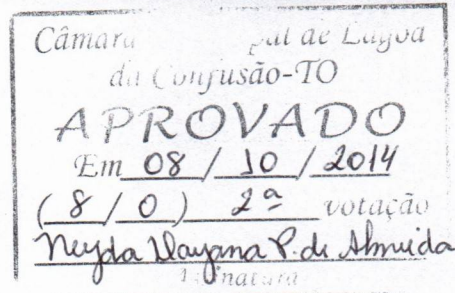 Câmara pal de Lagoa
da Confusão-TO
APROVADO
Em 08 / 10 / 2014
( 8 / 0 ) 2ª votação
Neyda Dayana P. de Almeida